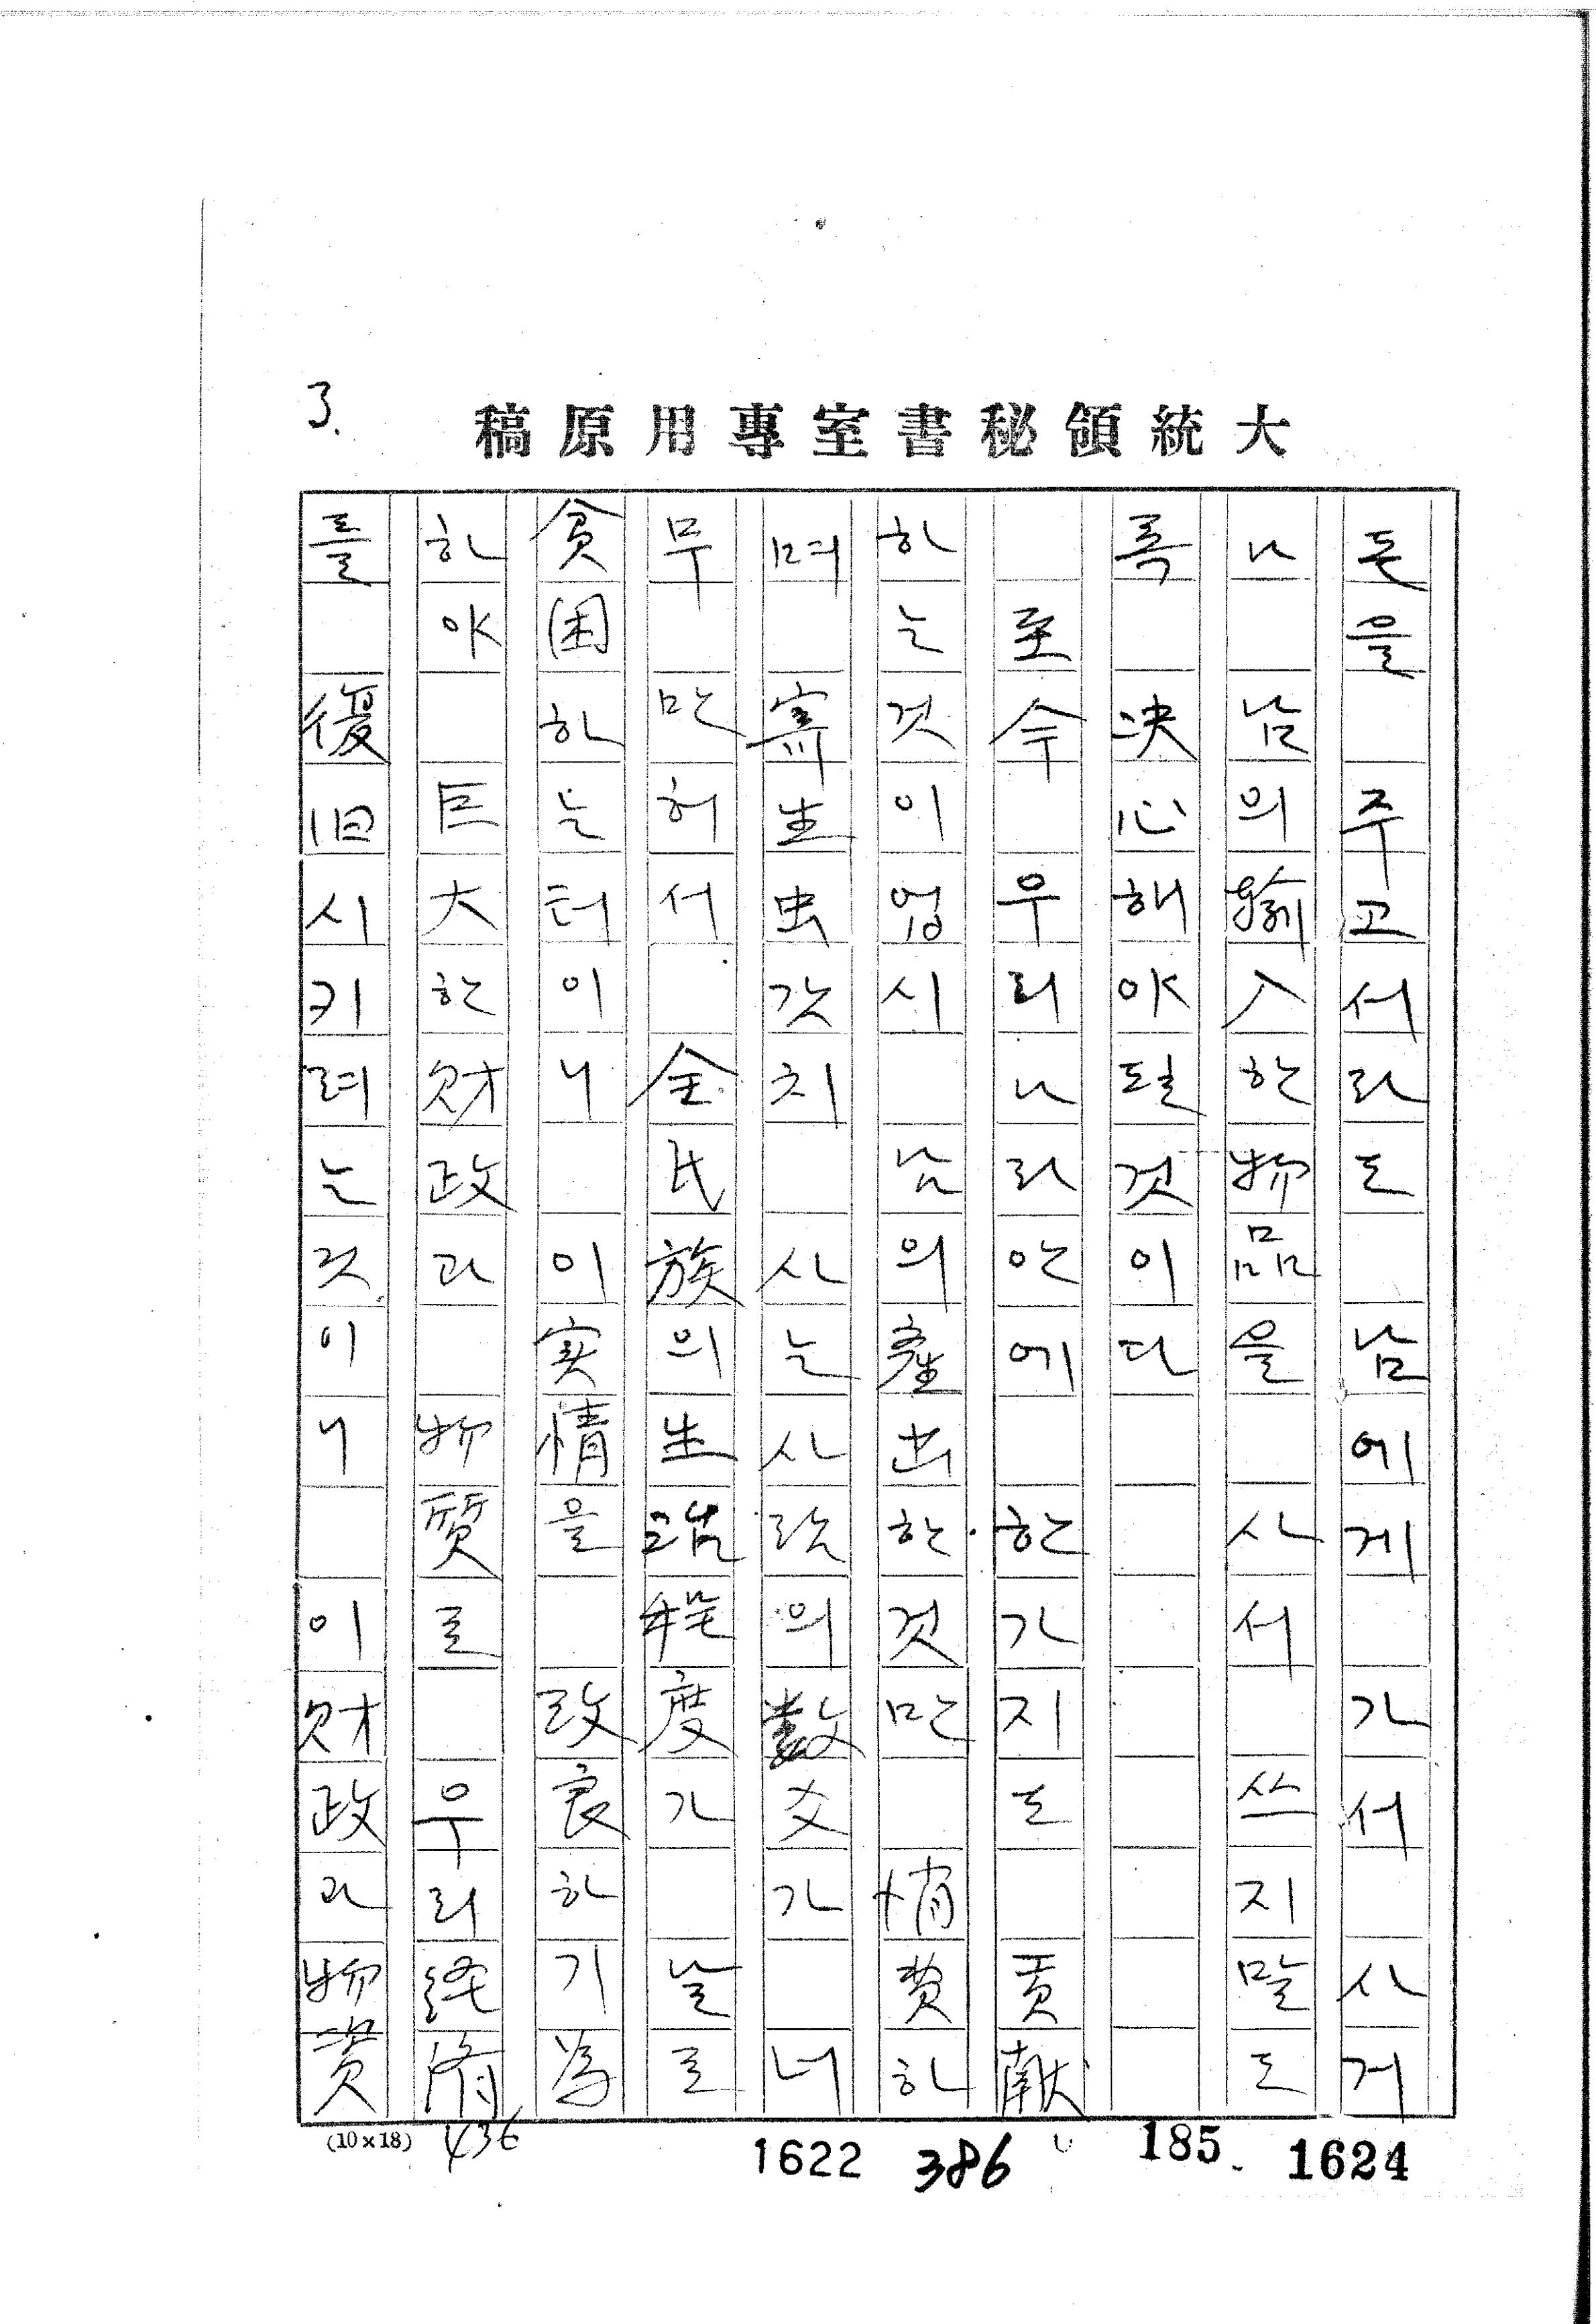 3.
稿原用專室書秘領統大
돈을 주고서라도 남에게 가서 사거
나 남의 輸入한物品을 사서 쓰지말도
록 决心해야될것이다
至今 우리나라안에 한가지도 貢献
하는것이업시 남의産出한것만 消費하
며 寄生虫갓치 사는사람의數爻가 너
무만허서 全民族의生活程度가 날로
貧困하는터이니 이実情을 改良하기爲
하야 巨大한財政과 物質로 우리経済
를 復旧시키려는것이니 이財政과物質
(10×18) 436 1622 386 185 1624